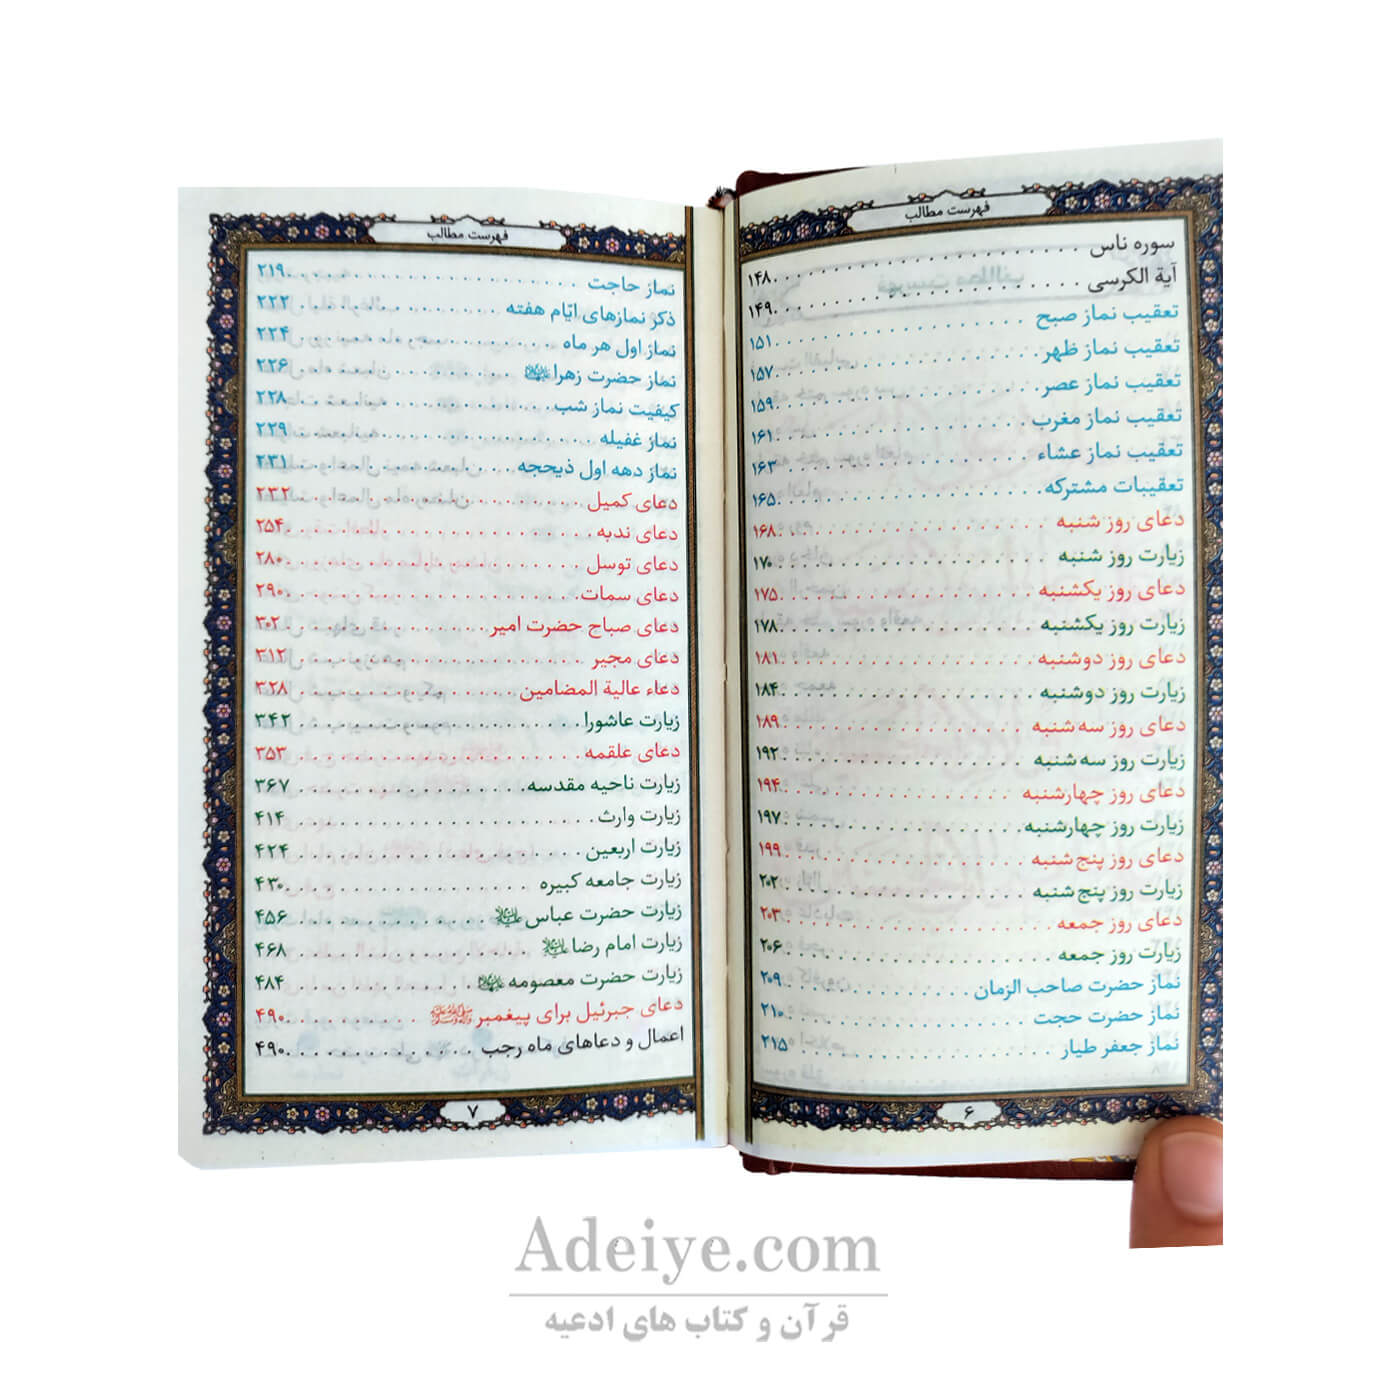 فهرست مطالب
سوره ناس . . . . . . . . . . . . . . . . . . . . ۱۴۸
آیة الکرسی . . . . . . . . . . . . . . . . . . . . ۱۴۹
تعقیب نماز صبح . . . . . . . . . . . . . . . . ۱۵۱
تعقیب نماز ظهر . . . . . . . . . . . . . . . . ۱۵۷
تعقیب نماز عصر . . . . . . . . . . . . . . . . ۱۵۹
تعقیب نماز مغرب . . . . . . . . . . . . . . . . ۱۶۱
تعقیب نماز عشاء . . . . . . . . . . . . . . . . ۱۶۳
تعقیبات مشترکه . . . . . . . . . . . . . . . . ۱۶۵
دعای روز شنبه . . . . . . . . . . . . . . . . ۱۶۸
زیارت روز شنبه . . . . . . . . . . . . . . . . ۱۷۰
دعای روز یکشنبه . . . . . . . . . . . . . . . . ۱۷۵
زیارت روز یکشنبه . . . . . . . . . . . . . . . . ۱۷۸
دعای روز دوشنبه . . . . . . . . . . . . . . . . ۱۸۱
زیارت روز دوشنبه . . . . . . . . . . . . . . . . ۱۸۴
دعای روز سه شنبه . . . . . . . . . . . . . . . . ۱۸۹
زیارت روز سه شنبه . . . . . . . . . . . . . . . . ۱۹۲
دعای روز چهارشنبه . . . . . . . . . . . . . . . . ۱۹۴
زیارت روز چهارشنبه . . . . . . . . . . . . . . . . ۱۹۷
دعای روز پنج شنبه . . . . . . . . . . . . . . . . ۱۹۹
زیارت روز پنج شنبه . . . . . . . . . . . . . . . . ۲۰۲
دعای روز جمعه . . . . . . . . . . . . . . . . ۲۰۳
زیارت روز جمعه . . . . . . . . . . . . . . . . ۲۰۶
نماز حضرت صاحب الزمان . . . . . . . . . . . . ۲۰۹
نماز حضرت حجت . . . . . . . . . . . . . . . . ۲۱۰
نماز جعفر طیار . . . . . . . . . . . . . . . . ۲۱۵
۶
فهرست مطالب
نماز حاجت . . . . . . . . . . . . . . . . ۲۱۹
ذکر نمازهای ایّام هفته . . . . . . . . . . . . ۲۲۲
نماز اول هر ماه . . . . . . . . . . . . . . . . ۲۲۴
نماز حضرت زهرا علیهاالسلام . . . . . . . . . . . . ۲۲۶
کیفیت نماز شب . . . . . . . . . . . . . . . . ۲۲۸
نماز غفیله . . . . . . . . . . . . . . . . ۲۲۹
نماز دهه اول ذیحجه . . . . . . . . . . . . ۲۳۱
دعای کمیل . . . . . . . . . . . . . . . . ۲۳۲
دعای ندبه . . . . . . . . . . . . . . . . ۲۵۴
دعای توسل . . . . . . . . . . . . . . . . ۲۸۰
دعای سمات . . . . . . . . . . . . . . . . ۲۹۰
دعای صباح حضرت امیر . . . . . . . . . . . . ۳۰۲
دعای مجیر . . . . . . . . . . . . . . . . ۳۱۲
دعاء عالیة المضامین . . . . . . . . . . . . ۳۲۸
زیارت عاشورا . . . . . . . . . . . . . . . . ۳۴۲
دعای علقمه . . . . . . . . . . . . . . . . ۳۵۳
زیارت ناحیه مقدسه . . . . . . . . . . . . ۳۶۷
زیارت وارث . . . . . . . . . . . . . . . . ۴۱۴
زیارت اربعین . . . . . . . . . . . . . . . . ۴۲۴
زیارت جامعه کبیره . . . . . . . . . . . . ۴۳۰
زیارت حضرت عباس علیه‌السلام . . . . . . . . . . . . ۴۵۶
زیارت امام رضا علیه‌السلام . . . . . . . . . . . . ۴۶۸
زیارت حضرت معصومه علیهاالسلام . . . . . . . . . . . . ۴۸۴
دعای جبرئیل برای پیغمبر ﷺ . . . . . . . . ۴۹۰
اعمال و دعاهای ماه رجب . . . . . . . . . . . . ۴۹۰
۷
Adeiye.com
قرآن و کتاب های ادعیه